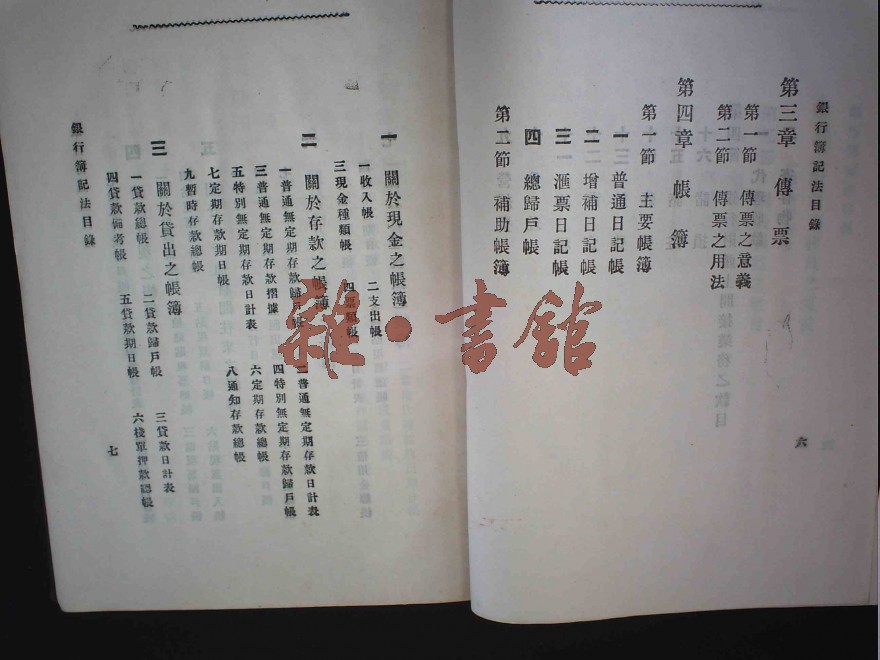 銀行簿記法目錄
第三章 傳票
第一節 傳票之意義
第二節 傳票之用法
第四章 帳簿
第一節 主要帳簿
一 普通日記帳
二 增補日記帳
三 滙票日記帳
四 總歸戶帳
第二節 補助帳簿
六
一 關於現金之帳簿
一收入帳 二支出帳
三現金種類帳 四票 帳
二 關於存款之帳簿
一普通無定期存款歸戶帳 二普通無定期存款日計表
三普通無定期存款摺據 四特別無定期存款歸戶帳
五特別無定期存款日計表 六定期存款總帳
七定期存款期日帳 八通知存款總帳
九暫時存款總帳
三 關於貸出之帳簿
一貸款總帳 二貸款歸戶帳 三貸款日計表
四貸款備考帳 五貸款期日帳 六棧單押款總帳
銀行簿記法目錄
七
雜·書館